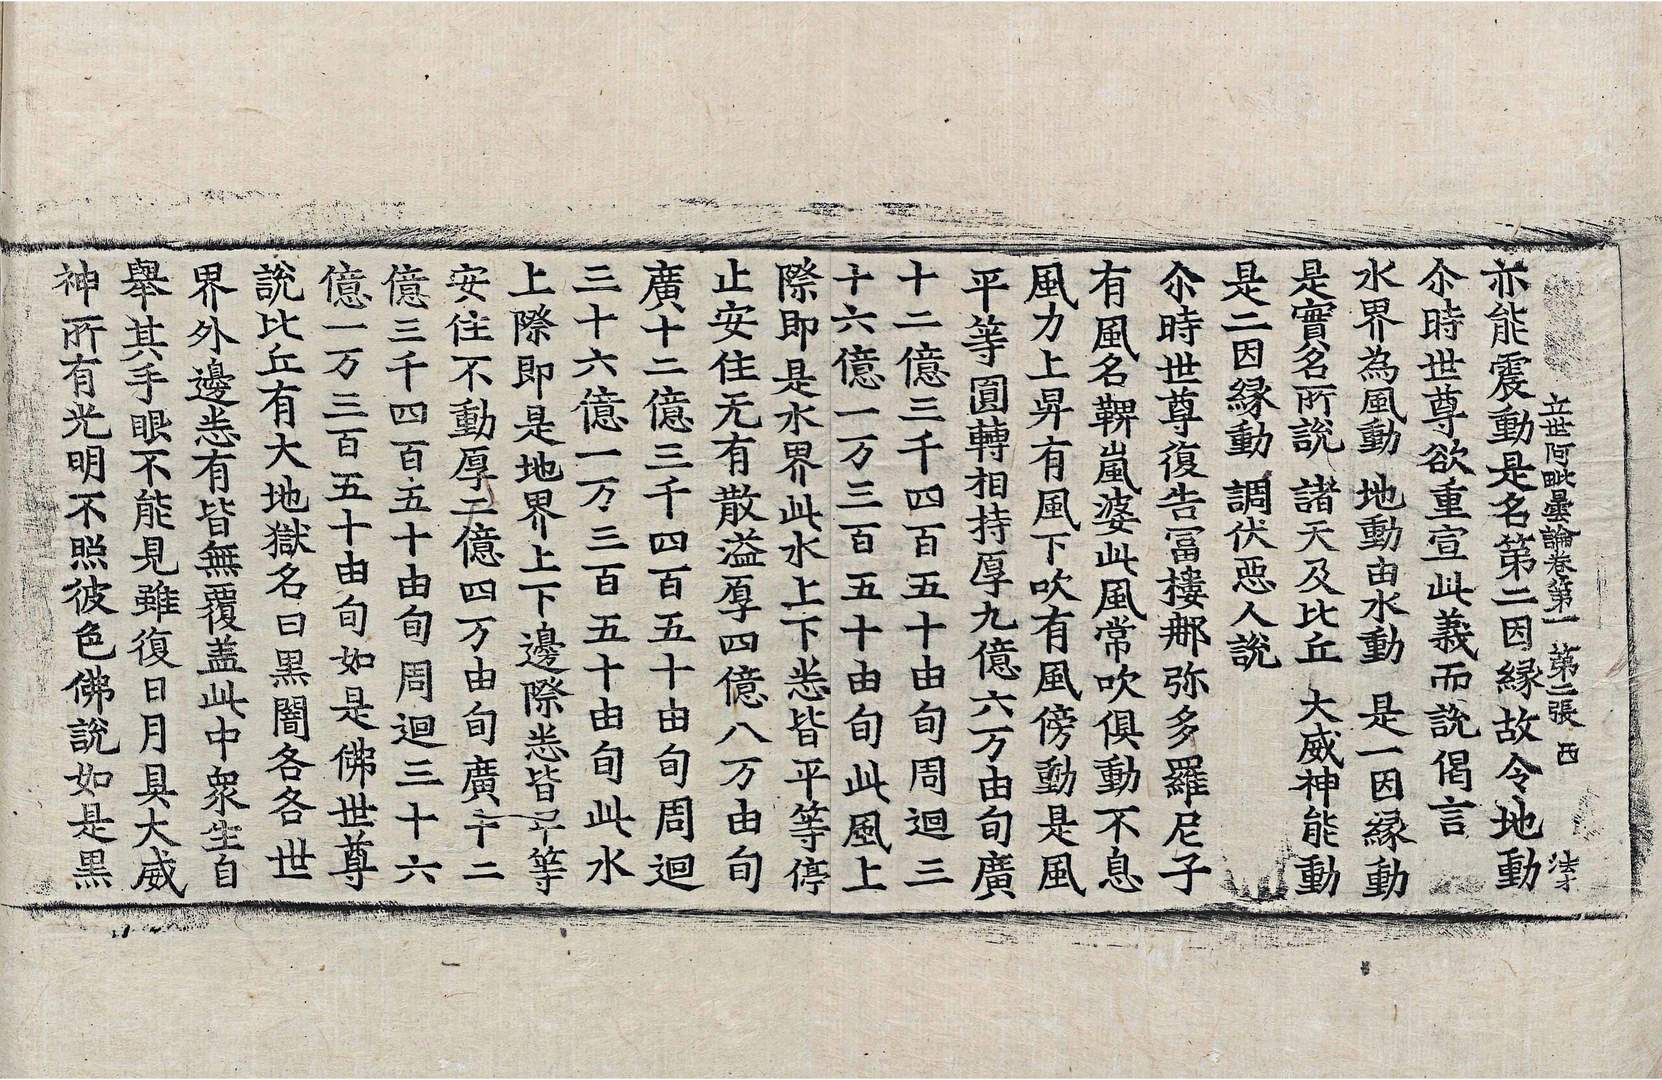 立世阿毗曇論卷第一 第二張 西 法才
亦能震動是名第二因縁故令地動
尒時世尊欲重宣此義而說偈言
水界為風動 地動由水動 是一因縁動
是實名所說 諸天及比丘 大威神能動
是二因縁動 調伏惡人說
尒時世尊復告冨樓那弥多羅尼子
有風名鞞嵐婆此風常吹俱動不息
風力上昇有風下吹有風傍動是風
平等圓轉相持厚九億六万由旬廣
十二億三千四百五十由旬周迴三
十六億一万三百五十由旬此風上
際即是水界此水上下悉皆平等停
止安住无有散溢厚四億八万由旬
廣十二億三千四百五十由旬周迴
三十六億一万三百五十由旬此水
上際即是地界上下邊際悉皆平等
安住不動厚二億四万由旬廣十二
億三千四百五十由旬周迴三十六
億一万三百五十由旬如是佛世尊
說比丘有大地獄名曰黑闇各各世
界外邊悉有皆無覆蓋此中衆生自
舉其手眼不能見雖復日月具大威
神所有光明不照彼色佛說如是黑